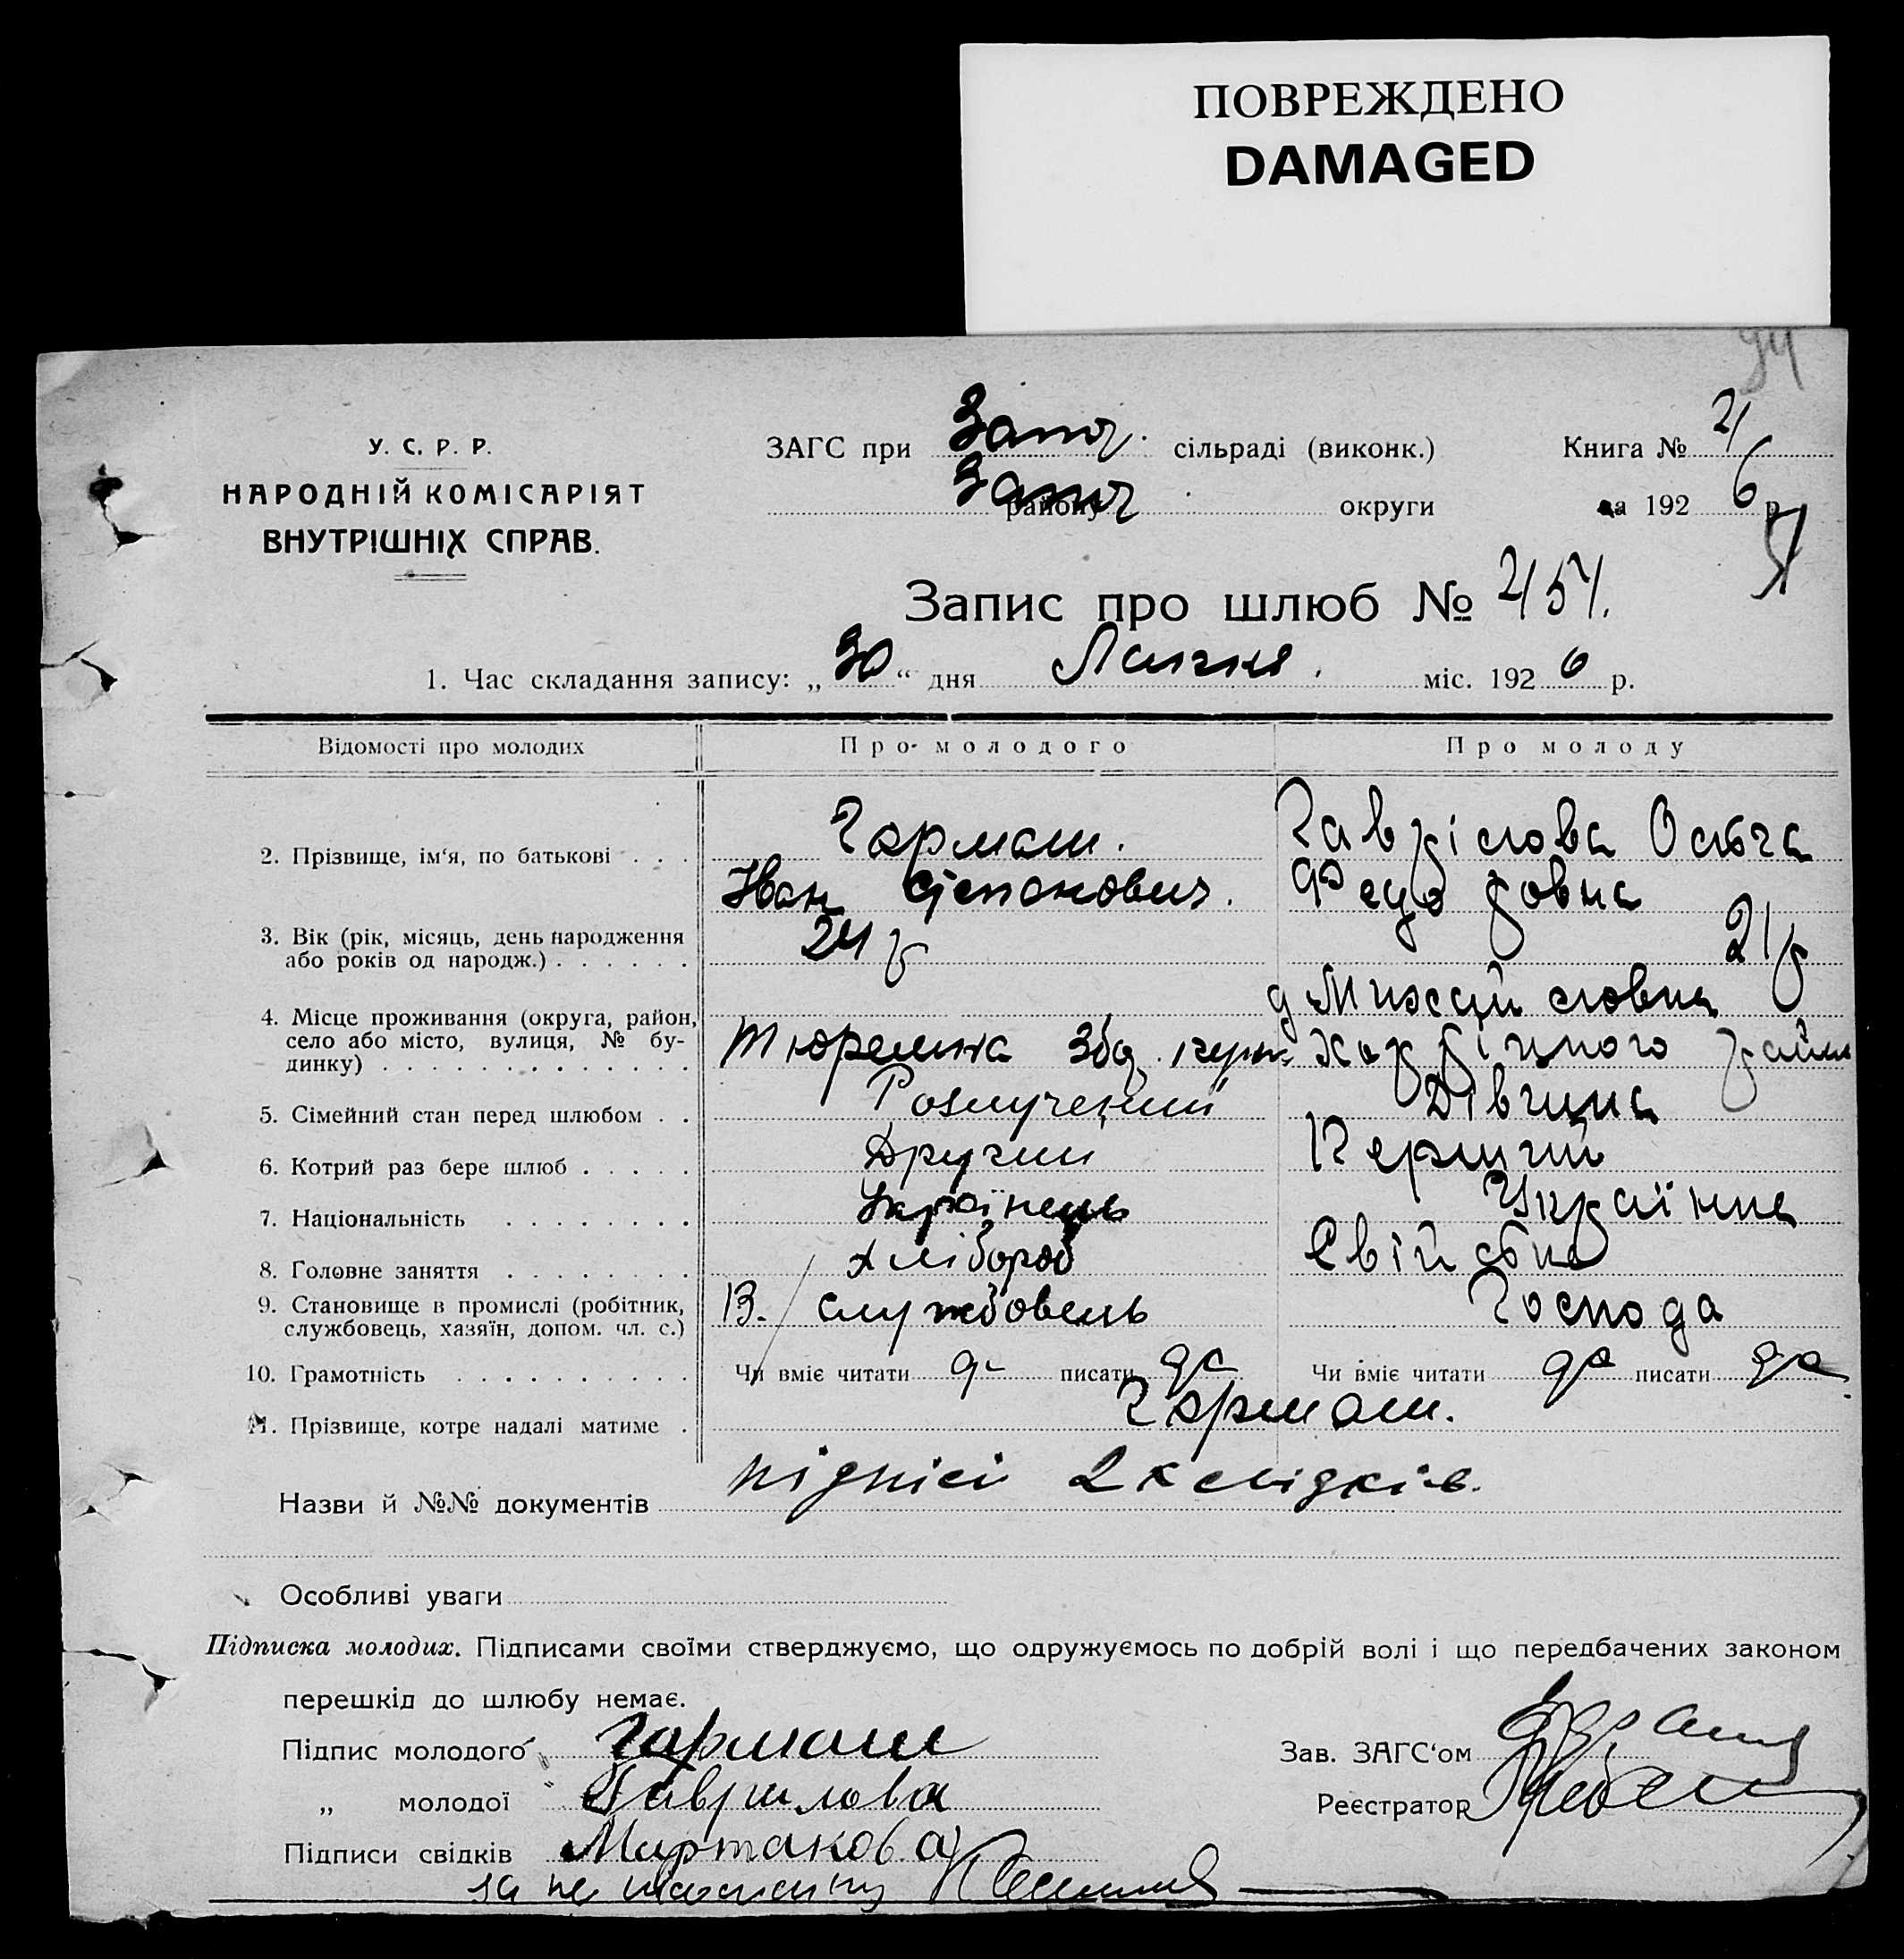 ПОВРЕЖДЕНО
DAMAGED
У. С. Р. Р.
НАРОДНІЙ КОМІСАРІЯТ
ВНУТРІШНІХ СПРАВ.
ЗАГС при Запор. сільраді (виконк.) Книга № 21
Запор району округи за 1926 р.
Запис про шлюб №
1. Час складання запису: „30“ дня Липня. міс. 1926 р.
Відомості про молодих Про молодого Про молоду
2. Прізвище, ім‘я, по батькові . . . Гармаш. Гаврілова Ольга
Іван Степанович. Федоровна
3. Вік (рік, місяць, день народження
або років од народж.) . . . . . . 24 р 21 р
4. Місце проживання (округа, район,
село або місто, вулиця, № бу-
динку) . . . . . . . . . . . . . Тюремна
5. Сімейний стан перед шлюбом . . Розлучений Дівчина
6. Котрий раз бере шлюб . . . . . Другий Перший
7. Національність . . . . . . . . Українець Українка
8. Головне заняття . . . . . . . . Хлібороб
9. Становище в промислі (робітник,
службовець, хазяїн, допом. чл. с.) В. службовець Господа
10. Грамотність . . . . . . . . . . Чи вміє читати да писати да Чи вміє читати да писати да
11. Прізвище, котре надалі матиме . Гармаш.
Назви й №№ документів підписі 2х свідків.
Особливі уваги
Підписка молодих. Підписами своїми стверджуємо, що одружуємось по добрій волі і що передбачених законом
перешкід до шлюбу немає.
Підпис молодого Гармаш Зав. ЗАГС‘ом
„ молодої Гаврилова Реєстратор
Підписи свідків Миртакова